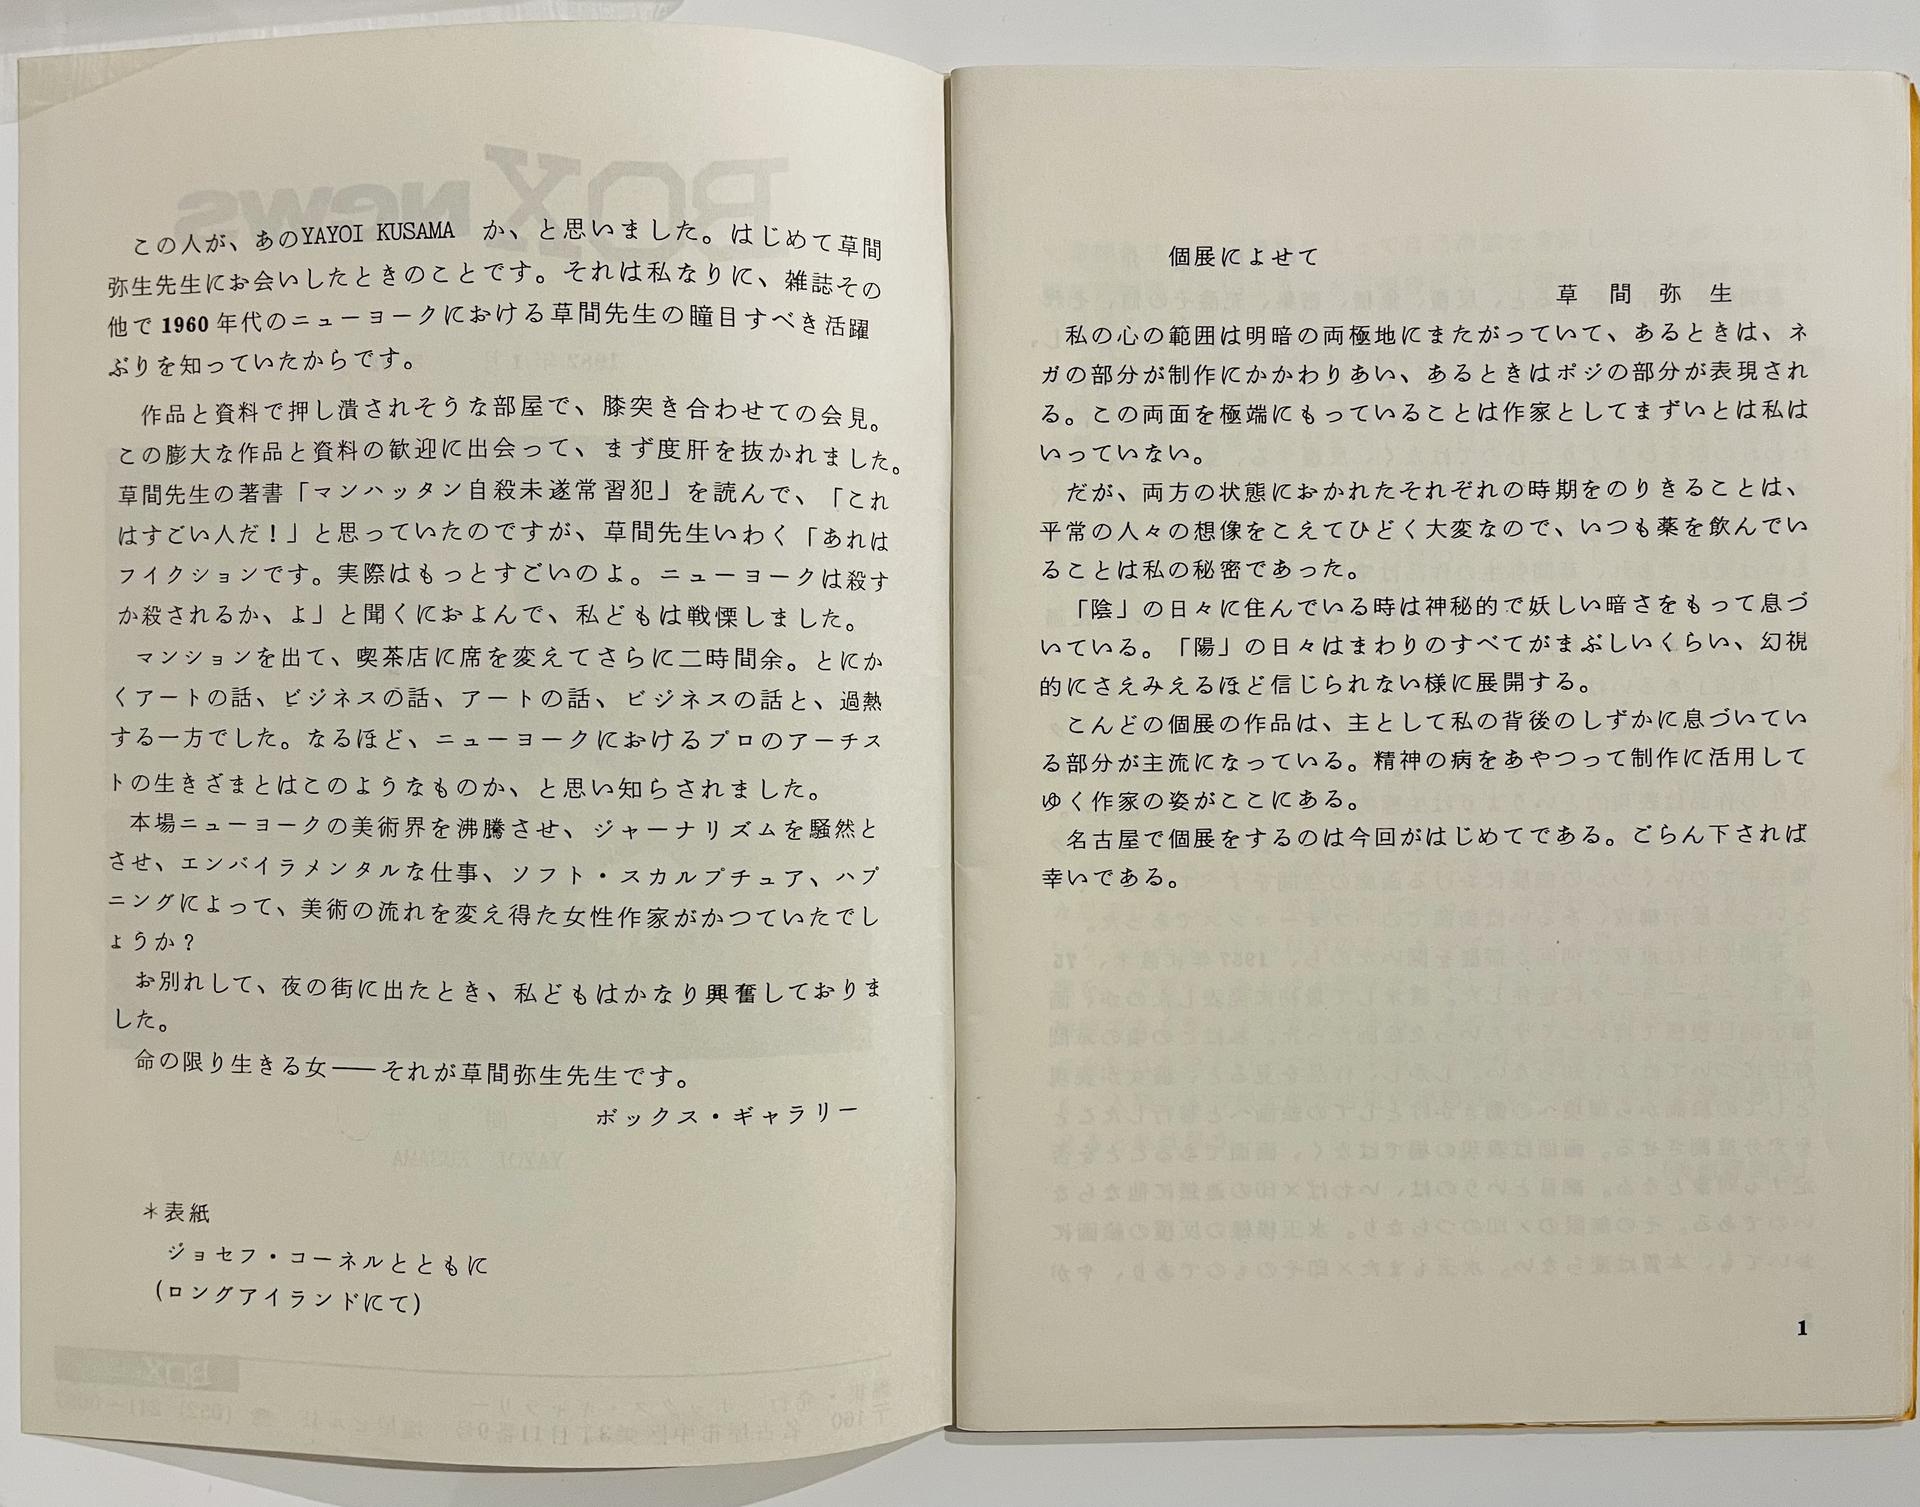 この人が、あのYAYOI KUSAMA か、と思いました。はじめて草間
弥生先生にお会いしたときのことです。それは私なりに、雑誌その
他で1960年代のニューヨークにおける草間先生の瞳目すべき活躍
ぶりを知っていたからです。
作品と資料で押し潰されそうな部屋で、膝突き合わせての会見。
この膨大な作品と資料の歓迎に出会って、まず度肝を抜かれました。
草間先生の著書「マンハッタン自殺未遂常習犯」を読んで、「これ
はすごい人だ！」と思っていたのですが、草間先生いわく「あれは
フイクションです。実際はもっとすごいのよ。ニューヨークは殺す
か殺されるか、よ」と聞くにおよんで、私どもは戦慄しました。
マンションを出て、喫茶店に席を変えてさらに二時間余。とにか
くアートの話、ビジネスの話、アートの話、ビジネスの話と、過熱
する一方でした。なるほど、ニューヨークにおけるプロのアーチス
トの生きざまとはこのようなものか、と思い知らされました。
本場ニューヨークの美術界を沸騰させ、ジャーナリズムを騒然と
させ、エンバイラメンタルな仕事、ソフト・スカルプチュア、ハプ
ニングによって、美術の流れを変え得た女性作家がかつていたでし
ょうか？
お別れして、夜の街に出たとき、私どもはかなり興奮しておりま
した。
命の限り生きる女――それが草間弥生先生です。
ボックス・ギャラリー
＊表紙
ジョセフ・コーネルとともに
(ロングアイランドにて)
個展によせて
草間弥生
私の心の範囲は明暗の両極地にまたがっていて、あるときは、ネ
ガの部分が制作にかかわりあい、あるときはポジの部分が表現され
る。この両面を極端にもっていることは作家としてまずいとは私は
いっていない。
だが、両方の状態におかれたそれぞれの時期をのりきることは、
平常の人々の想像をこえてひどく大変なので、いつも薬を飲んでい
ることは私の秘密であった。
「陰」の日々に住んでいる時は神秘的で妖しい暗さをもって息づ
いている。「陽」の日々はまわりのすべてがまぶしいくらい、幻視
的にさえみえるほど信じられない様に展開する。
こんどの個展の作品は、主として私の背後のしずかに息づいてい
る部分が主流になっている。精神の病をあやつって制作に活用して
ゆく作家の姿がここにある。
名古屋で個展をするのは今回がはじめてである。ごらん下されば
幸いである。
1